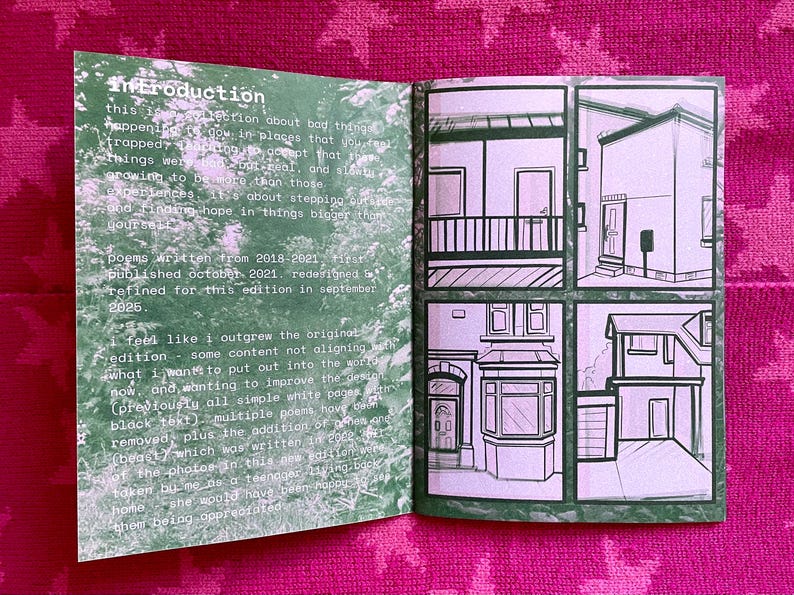 introduction
this is a collection about bad things
happening to you in places that you feel
trapped, learning to accept that these
things were bad, but real, and slowly
growing to be more than those
experiences. it's about stepping outside
and finding hope in things bigger than
yourself.
poems written from 2018-2021. first
published october 2021. redesigned &
refined for this edition in september
2025.
i feel like i outgrew the original
edition - some content not aligning with
what i want to put out into the world
now, and wanting to improve the design
(previously all simple white pages with
black text). multiple poems have been
removed, plus the addition of a new one
(beast) which was written in 2022. all
of the photos in this new edition were
taken by me as a teenager living back
home - she would have been happy to see
them being appreciated.